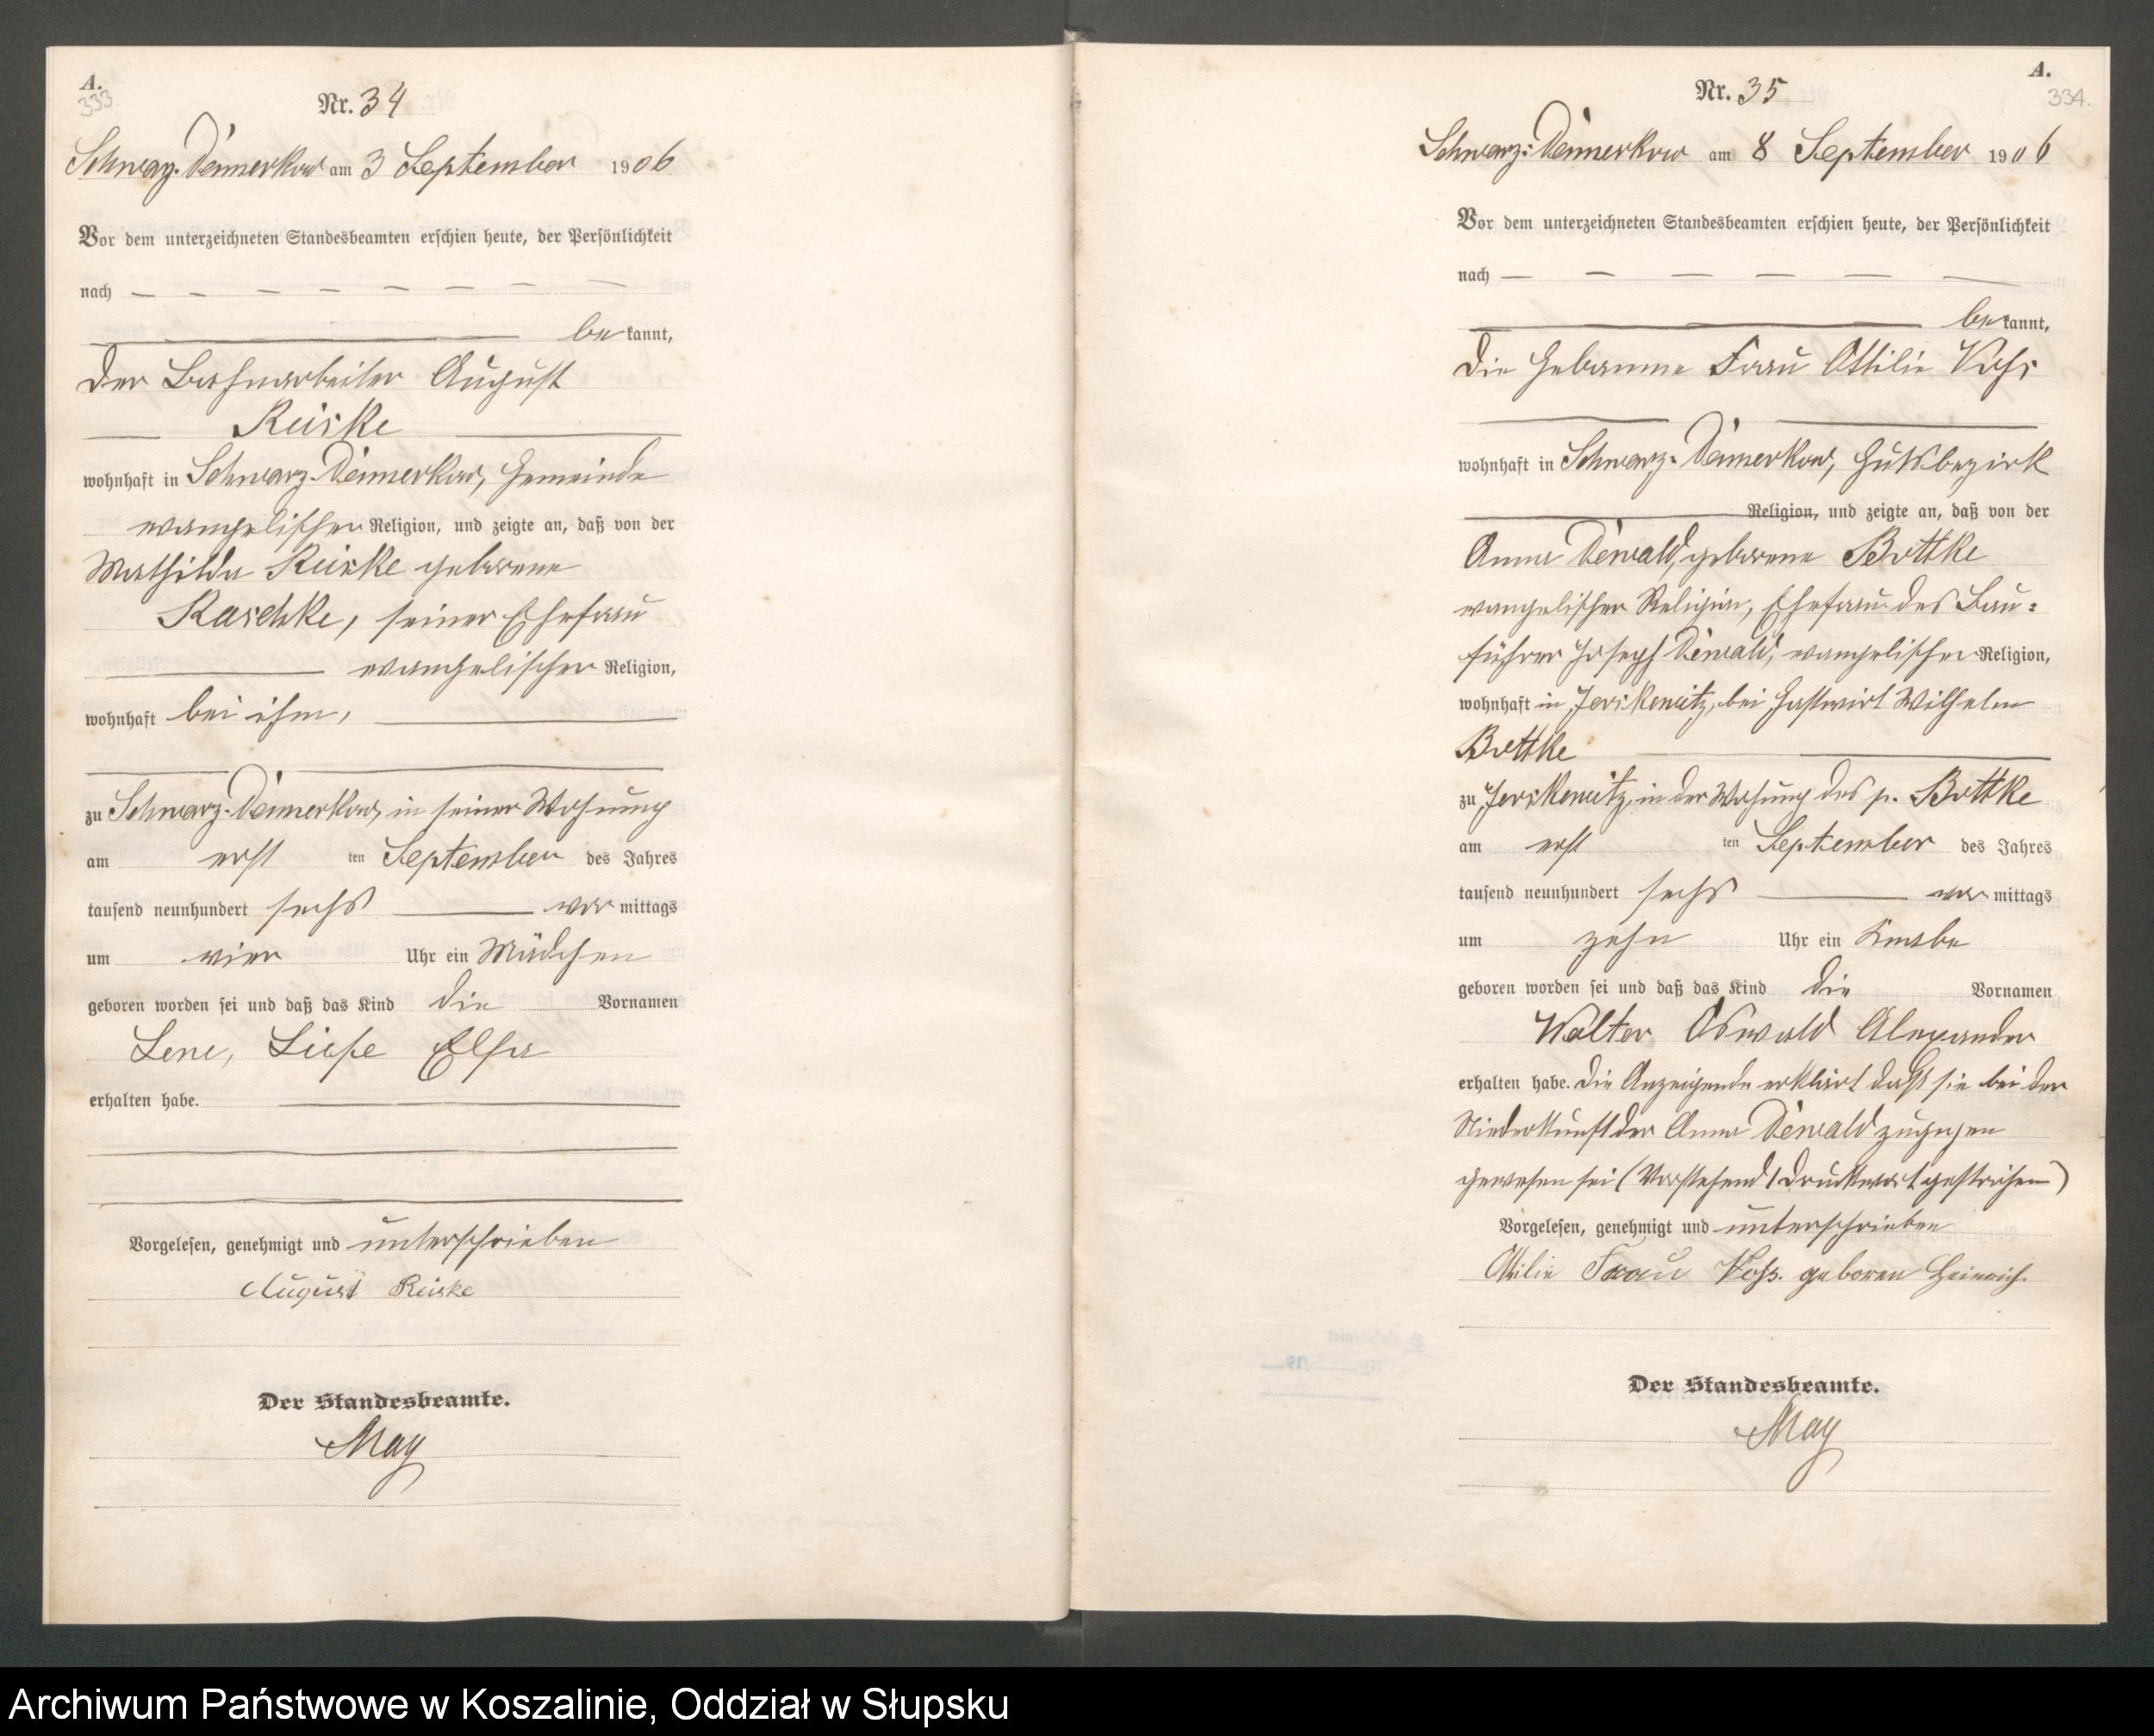 A.
333
Nr. 34
Schwarz-Damerkow am 3 September 1906
Vor dem unterzeichneten Standesbeamten erschien heute, der Persönlichkeit
nach — — — — — — — —
bekannt,
der Bahnarbeiter August
Reiske
wohnhaft in Schwarz-Damerkow, Gemeinde
evangelischer Religion, und zeigte an, daß von der
Mathilde Reiske geborene
Raschke, seiner Ehefrau
evangelischer Religion,
wohnhaft bei ihm,
zu Schwarz-Damerkow, in seiner Wohnung
am erst ten September des Jahres
tausend neunhundert sechs vor mittags
um vier Uhr ein Mädchen
geboren worden sei und daß das Kind die Vornamen
Lene, Liese Elsa
erhalten habe.
Vorgelesen, genehmigt und unterschrieben
August Reiske
Der Standesbeamte.
May
A.
334.
Nr. 35
Schwarz-Damerkow am 8 September 1906
Vor dem unterzeichneten Standesbeamten erschien heute, der Persönlichkeit
nach — — — — — —
bekannt,
die Hebamme Frau Ottilie Voss
wohnhaft in Schwarz-Damerkow, Gutsbezirk
Religion, und zeigte an, daß von der
Anna Dewald, geborene Bottke
evangelischer Religion, Ehefrau des Bau-
führer Joseph Dewald, evangelischer Religion,
wohnhaft in Jerskewitz, bei Gastwirt Wilhelm
Bottke
zu Jerskewitz, in der Wohnung des p. Bottke
am erst ten September des Jahres
tausend neunhundert sechs vor mittags
um zehn Uhr ein Knabe
geboren worden sei und daß das Kind die Vornamen
Walter Oswald Alexander
erhalten habe. Die Anzeigende erklärt daß sie bei der
Niederkunft der Anna Dewald zugegen
gewesen sei (Vorstehend 1 Druckwort gestrichen)
Vorgelesen, genehmigt und unterschrieben
Ottilie Frau Voss. geboren Heinrich.
Der Standesbeamte.
May
Archiwum Państwowe w Koszalinie, Oddział w Słupsku